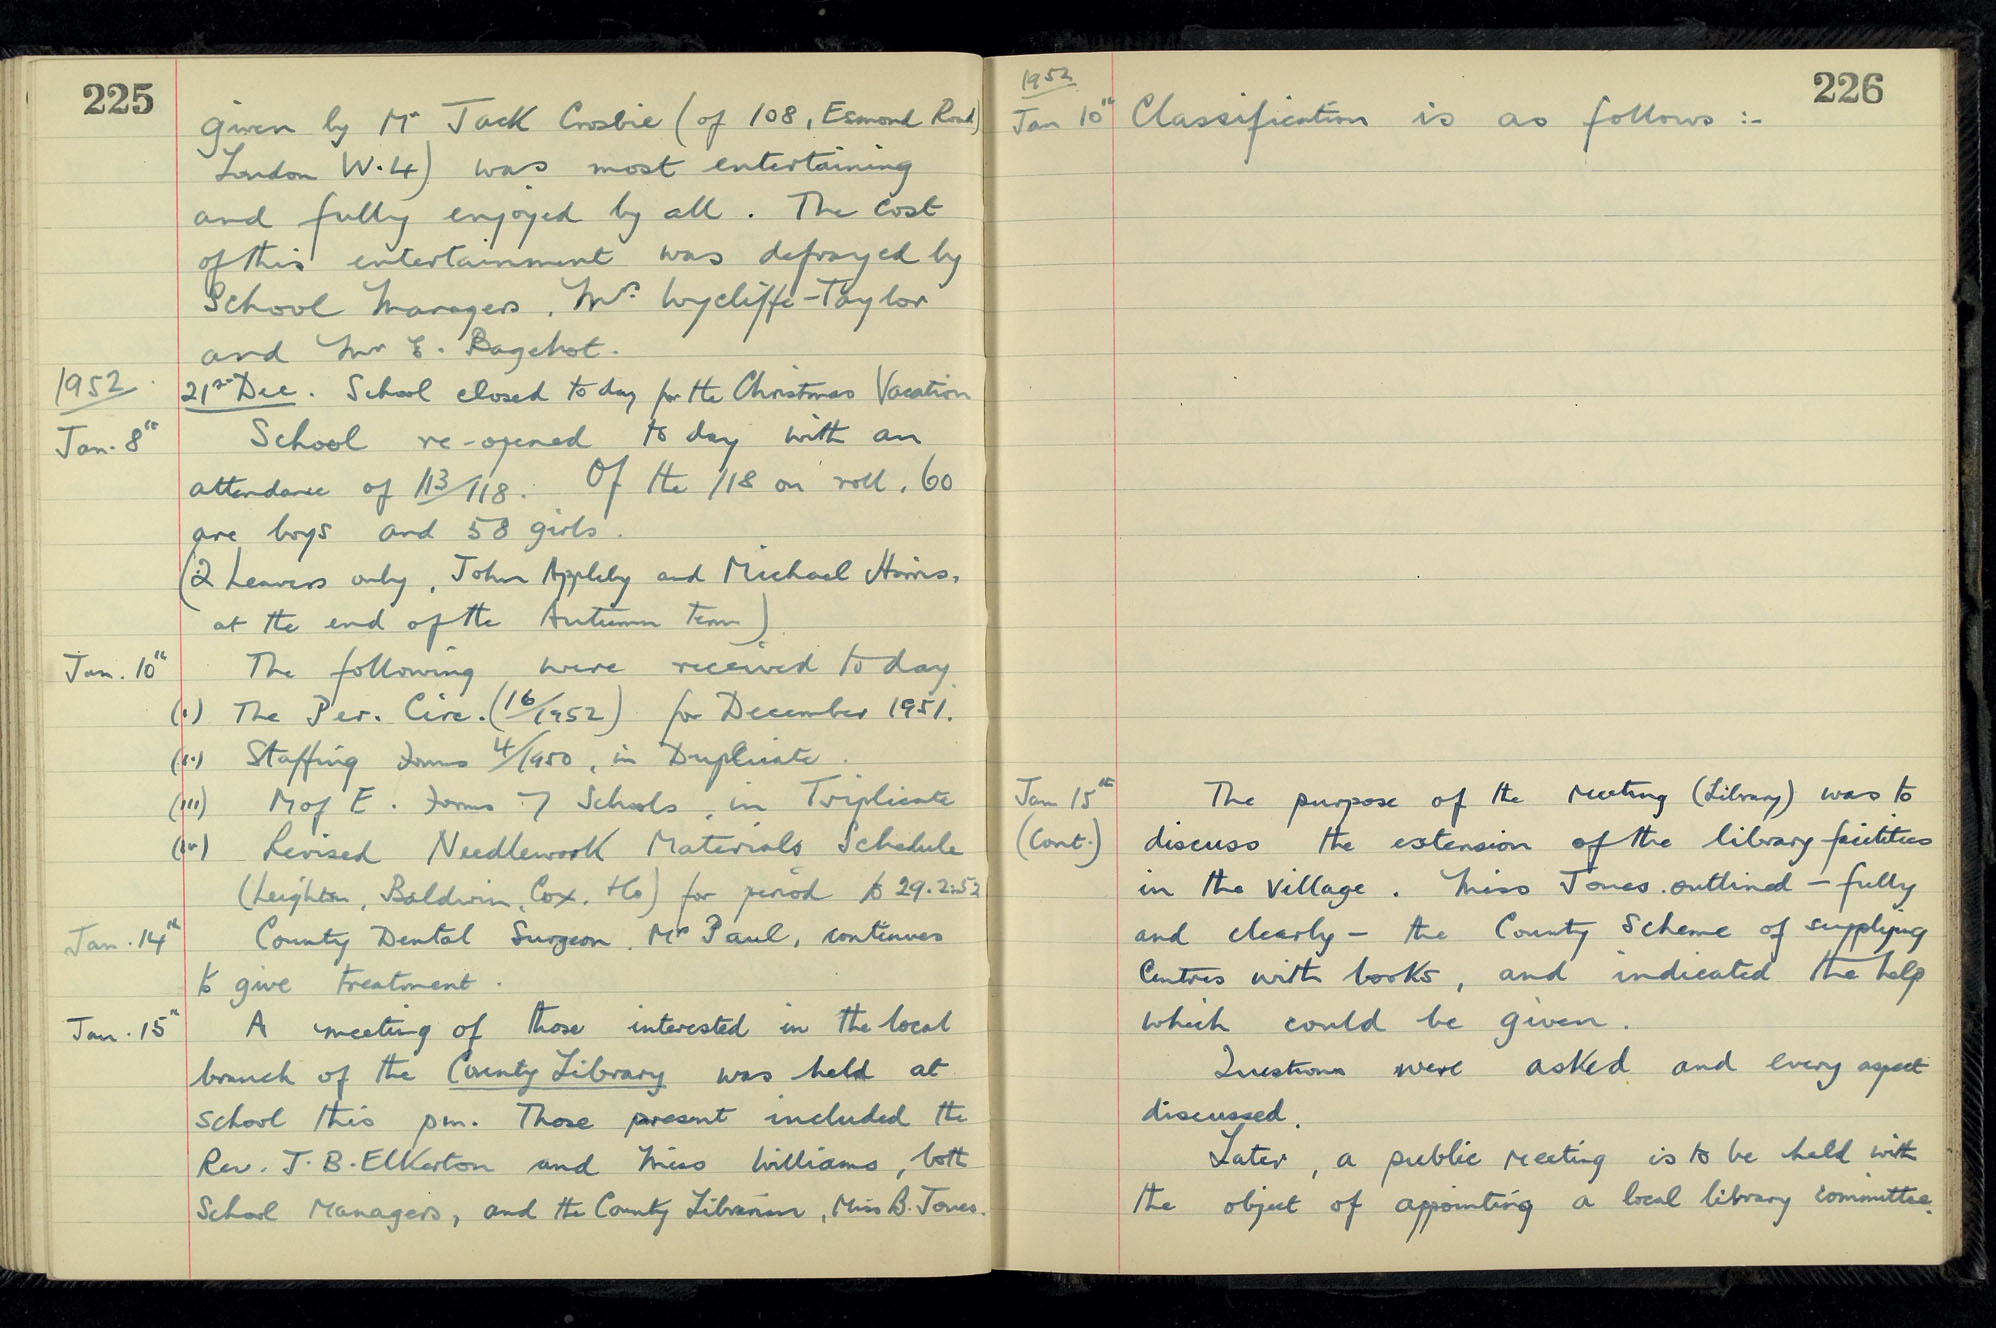 225
given by Mr Jack Crosbie (of 108, Esmond Road
London W.4) was most entertaining
and fully enjoyed by all. The cost
of this entertainment was defrayed by
School Managers, Mrs. Wycliffe-Taylor
and Mr E. Bagehot.
1952
21st Dec. School closed today for the Christmas Vacation
Jan. 8th School re-opened today with an
attendance of 113/118. Of the 118 on roll, 60
are boys and 58 girls.
(2 Leavers only, John Appleby and Michael Harris,
at the end of the Autumn Term)
Jan. 10th The following were received today
(i) The Per. Circ. (16/1952) for December 1951.
(ii) Staffing Forms 4/1950, in Duplicate.
(iii) M of E. Forms 7 Schools, in Triplicate
(iv) Revised Needlework Materials Schedule
(Leighton, Baldwin, Cox, Ho) for period to 29.2.52
Jan. 14th County Dental Surgeon, Mr Paul, continues
to give treatment.
Jan. 15th A meeting of those interested in the local
branch of the County Library was held at
school this pm. Those present included the
Rev. J. B. Elkerton and Miss Williams, both
School Managers, and the County Librarian, Miss B. Jones.
1952
226
Jan 10th Classification is as follows :-
Jan 15th The purpose of the meeting (Library) was to
(Cont.) discuss the extension of the library facilities
in the village. Miss Jones outlined - fully
and clearly - the County Scheme of supplying
Centres with books, and indicated the help
which could be given.
Questions were asked and every aspect
discussed.
Later, a public meeting is to be held with
the object of appointing a local library committee.